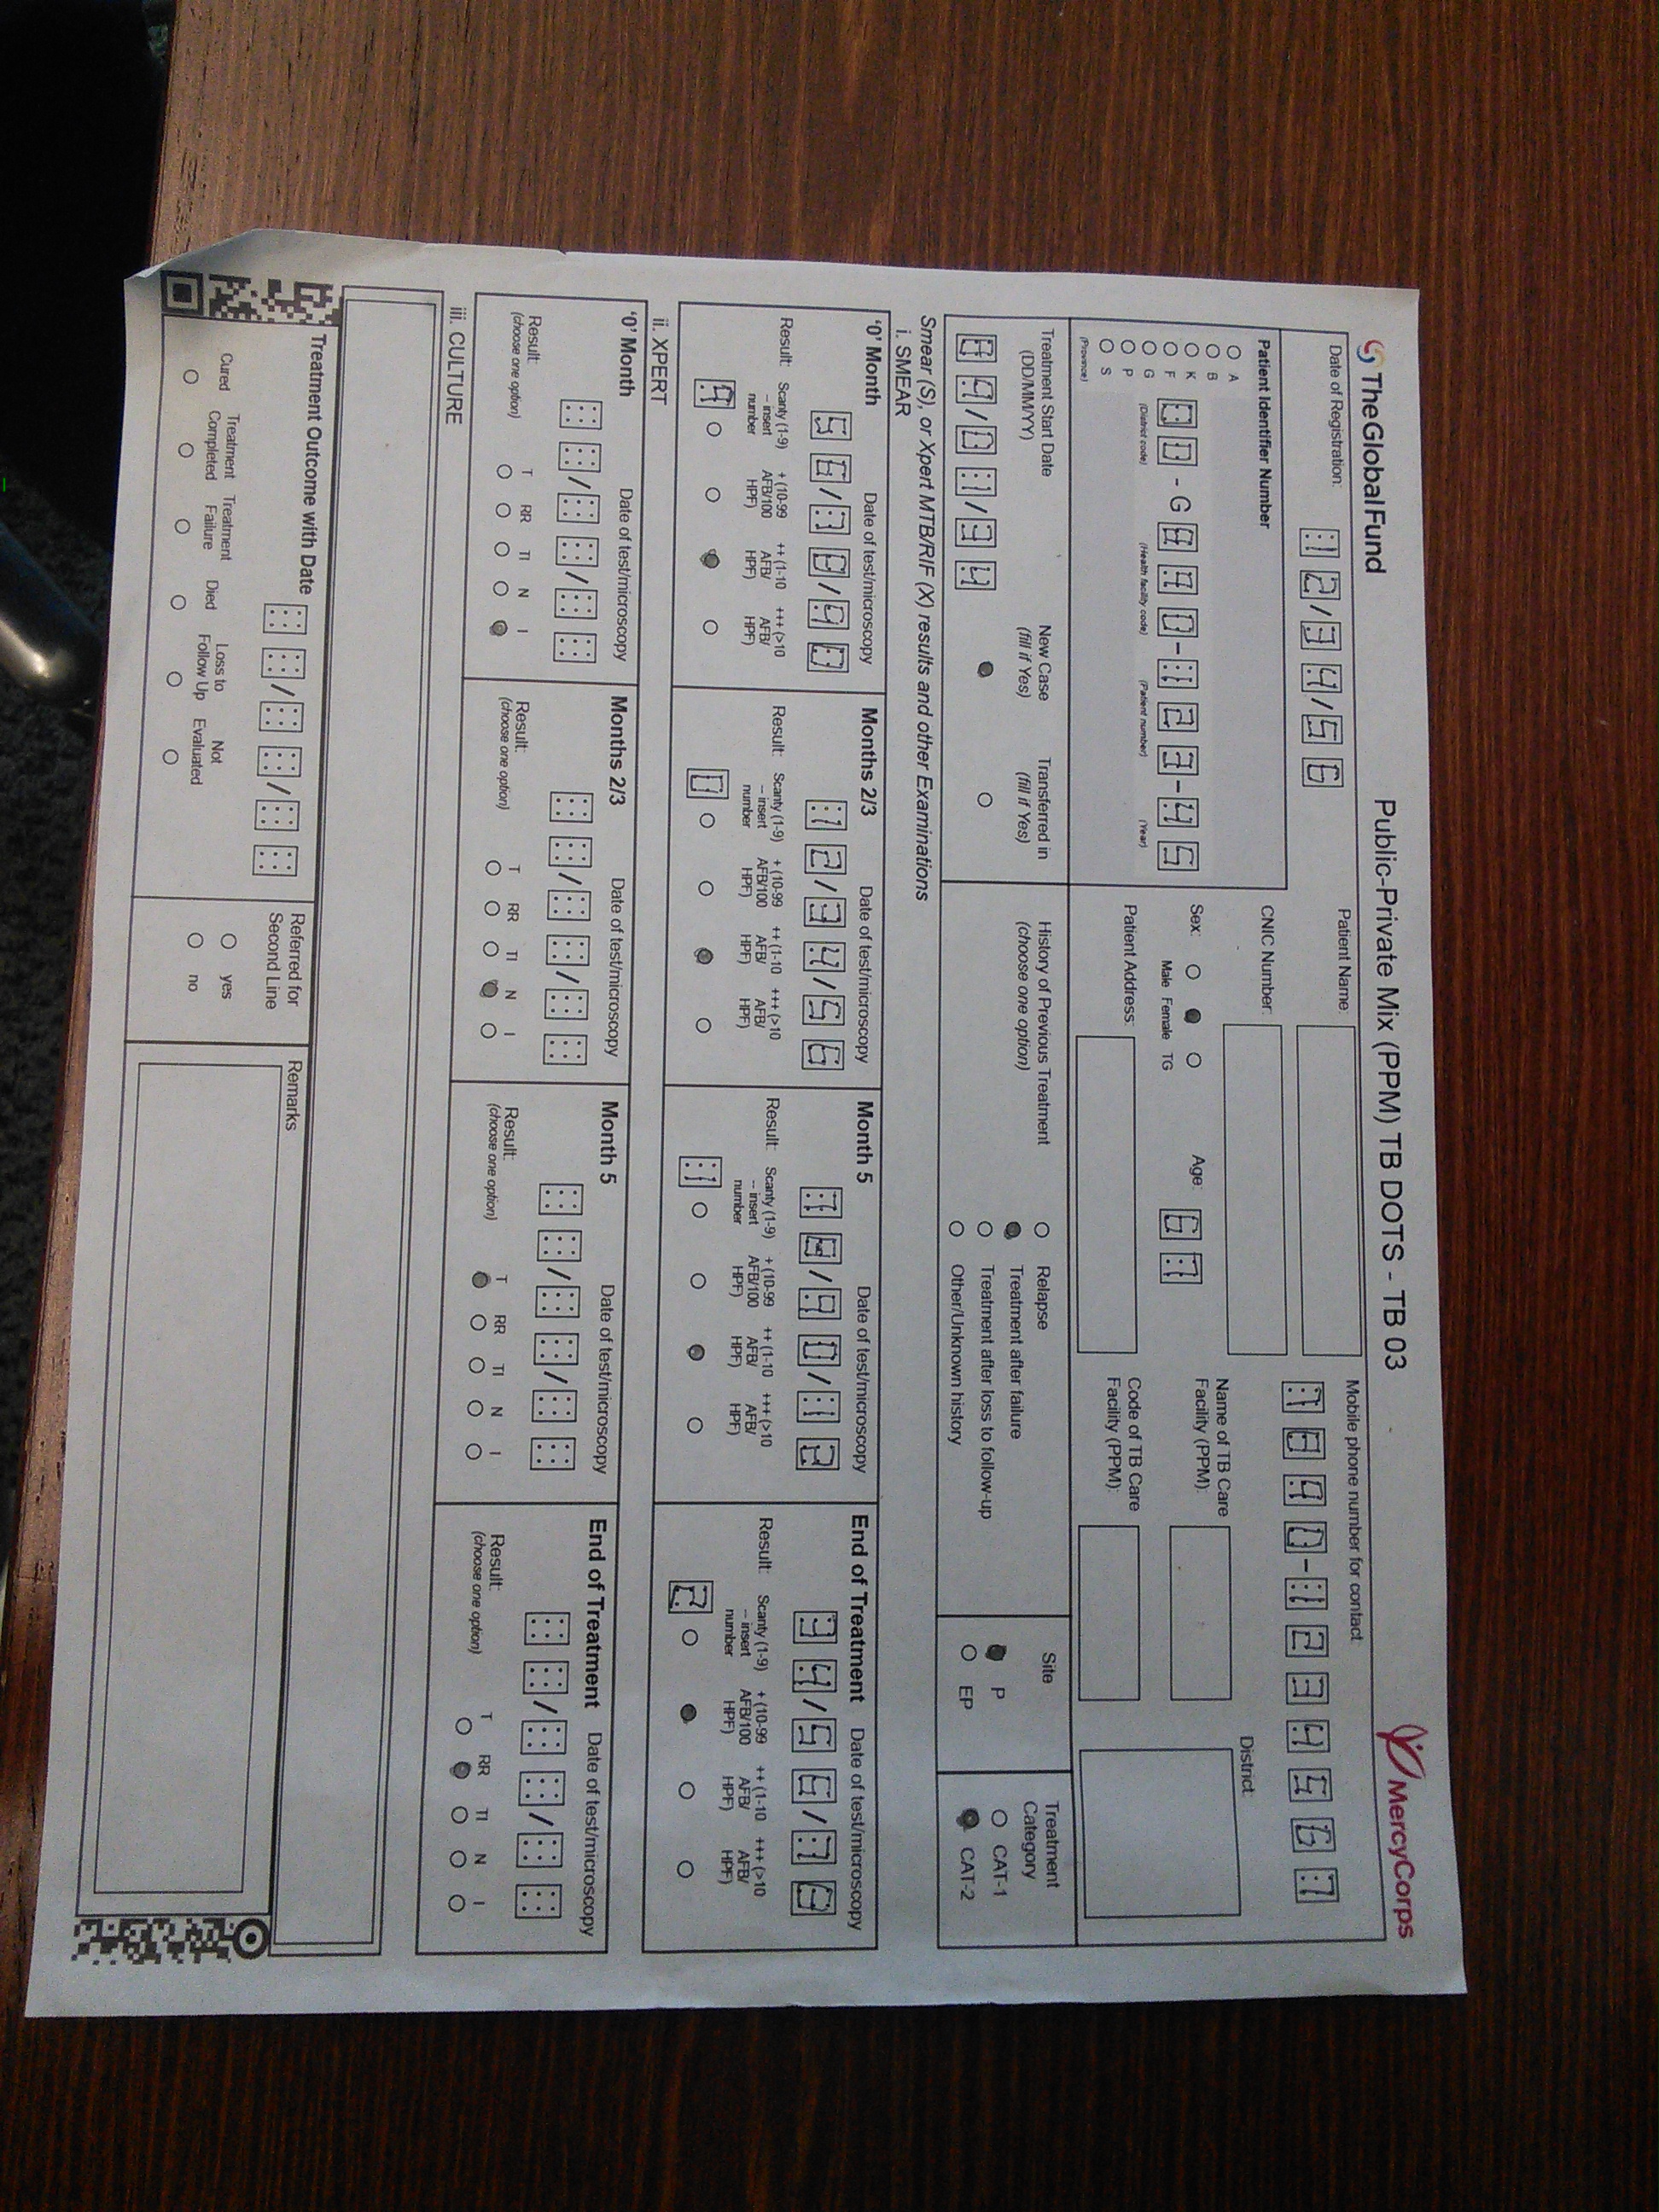 TheGlobalFund
Public-Private Mix (PPM) TB DOTS - TB 03
MercyCorps
Date of Registration: 12/34/56
Patient Name:
Mobile phone number for contact
7890-1234567
Patient Identifier Number
A
B
K
F
G
P
S
(Province)
(District code)
(Health facility code)
(Patient number)
(Year)
- G 0-123-45
CNIC Number:
Sex:
Male Female TG
Age: 67
Patient Address:
Name of TB Care
Facility (PPM):
Code of TB Care
Facility (PPM):
District:
Treatment Start Date
(DD/MM/YY)
89/01/34
New Case
(fill if Yes)
Transferred in
(fill if Yes)
History of Previous Treatment
(choose one option)
Relapse
Treatment after failure
Treatment after loss to follow-up
Other/Unknown history
Site
P
EP
Treatment
Category
CAT-1
CAT-2
Smear (S), or Xpert MTB/RIF (X) results and other Examinations
i. SMEAR
'0' Month
Date of test/microscopy
56/78/90
Result:
Scanty (1-9)
– insert
number
+ (10-99
AFB/100
HPF)
++ (1-10
AFB/
HPF)
+++ (>10
AFB/
HPF)
9
Months 2/3
Date of test/microscopy
12/34/56
Result:
Scanty (1-9)
– insert
number
+ (10-99
AFB/100
HPF)
++ (1-10
AFB/
HPF)
+++ (>10
AFB/
HPF)
0
Month 5
Date of test/microscopy
78/90/12
Result:
Scanty (1-9)
– insert
number
+ (10-99
AFB/100
HPF)
++ (1-10
AFB/
HPF)
+++ (>10
AFB/
HPF)
1
End of Treatment
Date of test/microscopy
34/56/78
Result:
Scanty (1-9)
– insert
number
+ (10-99
AFB/100
HPF)
++ (1-10
AFB/
HPF)
+++ (>10
AFB/
HPF)
2
ii. XPERT
'0' Month
Date of test/microscopy
/ /
Result:
(choose one option)
T RR TI N I
Months 2/3
Date of test/microscopy
/ /
Result:
(choose one option)
T RR TI N I
Month 5
Date of test/microscopy
/ /
Result:
(choose one option)
T RR TI N I
End of Treatment
Date of test/microscopy
/ /
Result:
(choose one option)
T RR TI N I
iii. CULTURE
Treatment Outcome with Date
/ /
Cured
Treatment
Completed
Treatment
Failure
Died
Loss to
Follow Up
Not
Evaluated
Referred for
Second Line
yes
no
Remarks